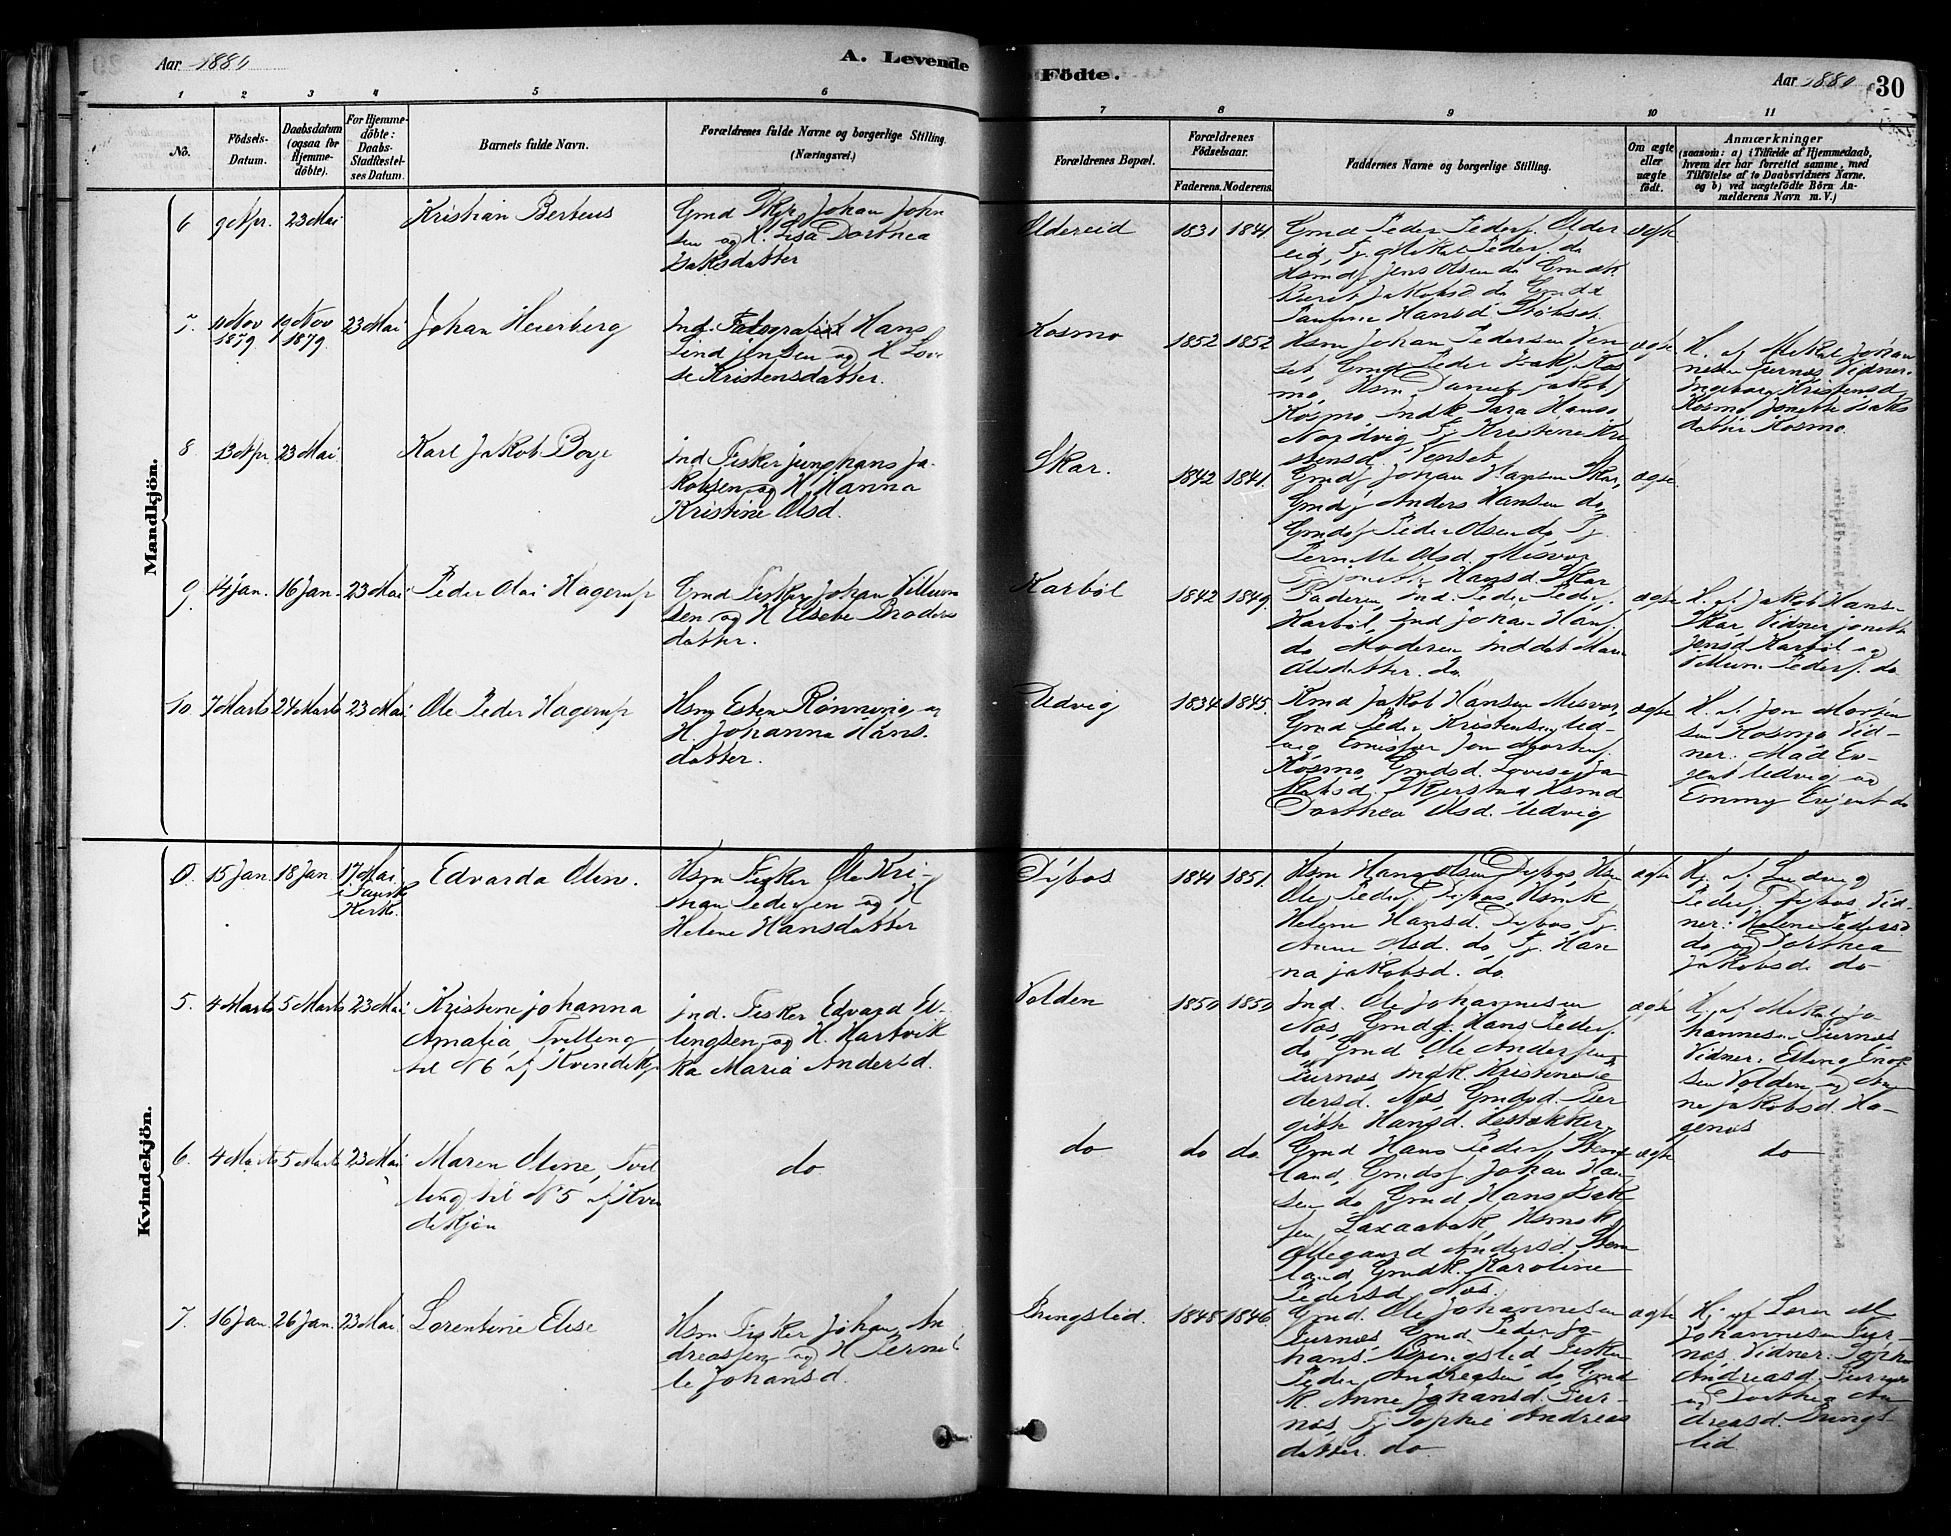 Aar 1880
A. Levende
Födte.
Aar 1880
30
1 2 3 4 5 6 7 8 9 10 11
No.
Födsels-
Datum.
Daabsdatum
(ogsaa for
Hjemme-
döbte).
For Hjemme-
döbte:
Daabs-
Stadfæstel-
ses Datum.
Barnets fulde Navn.
Forældrenes fulde Navne og borgerlige Stilling.
(Næringsvei.)
Forældrenes Bopæl.
Forældrenes
Födselsaar.
Faderens. Moderens.
Faddernes Navne og borgerlige Stilling.
Om ægte
eller
uægte
født.
Anmærkninger
(saasom: a) i Tilfælde af Hjemmedaab,
hvem der har forrettet samme, med
Tilföielse af to Daabsvidners Navne.
og b) ved uægtefödte Börn An-
melderens Navn m. V.)
Mandkjön.
6 9 Apr. 23 Mai
Kristian Berteus
Gmd Johan John
sen og H. Lisa Dorthea
Isaksdatter
Oldereid
1831 1841
Gmd Peder Peders. Older
eid
Jens Olsen do
Jakobsd. do
Hansd.
ægte
7 19 Nov
1879
1879
23 Mai
Johan Heierberg
Ind. Hans
Lind Jensen og H. Lovi
se Kristensdatter.
Kosmo
1852 1852
Hsm Johan Pedersen Ven
set, Gmd Peder Isaks. Kos
mo, Hsm. Daniel Jakobs.
Kosmo Indk. Sara Hansd.
Nordvig Kristine Kri
stensd. Venset
ægte
H. af Mikal Johan
nesen Furnæs Vidner.
Ingeborg Kristensd
Kosmo Jonette Isaks
datter Kosmo.
8 13 Apr. 23 Mai
Karl Jakob Borge
ind Fisker Junghans Ja-
kobsen og H. Hanna
Kristine Olsd.
Skar.
1842 1841.
Johan Hansen Skar,
Anders Hansen do
Peder Olsen do
Pernille Olsd. Misvær
Hansd. Skar
ægte.
9 14 Jan. 16 Jan. 23 Mai
Peder Olai Hagerup
Gmd Fisker Johan Villum
sen og H Elseba Broders
datter.
Karbøl
1842 1849.
Faderen, Ind. Peder Peders.
Karbøl, Ind Johan Hans.
do Moderen
Olsdatter. do
ægte
H. af Jakob Hans-
Skar, Vidner Jonette
Jensd Karbøl og
Villum Peders. do
10 7 Marts 24 Marts 23 Mai
Ole Peder Hagerup
Hsm Esten Rønning og
H. Johanna Hans-
datter.
Udvig
1834 1845.
Jakob Hansen Misvær,
Gmd Peder Kristensen Ud-
vig, Jon Mortens.
Kosmo, Gmdsd. Lovise Ja-
kobsd. Skjerstad Hsmd
Dorthea Olsd. Udvig
ægte
H. af Jon Morten
sen Kosmo Vid-
ner: Mad Ev-
jent Udvig og
Emmy Evjent do
Kvindekjön.
15 Jan. 18 Jan 17 Mai
i Fauske
Kirke.
Edvarda Oline.
Hsm Fisker Ole Kri-
stian Pedersen og H
Helene Hansdatter
Dybos
1841 1851.
Hsm Hans Olsen Dybos, Hsm
Ole Peders. Dybos, Hsmk
Helene Hansd. Dybos,
Anne Olsd. do Han
na Jakobsd. do
ægte
Hj. af Ludvig
Peders. Dybos Vid-
ner: Helene Pedersd
do og Dorthea
Jakobsd. do
5. 4 Marts 5 Marts 23 Mai
Kristine Johanna
Amalia Tvilling
til N 6 af Kvindekj.
ind. Fisker Edvard El-
lingsen og H. Hartvik
ka Maria Andersd.
Volden
1850 1850
Ind. Ole Johannesen
Næs, Hans Peders.
do Gmd Ole Anders
Furnæs, Indk. Kristine Pe
dersd. Næs, Gmdsd. Ber
gitte Hansd.
ægte
Hj. af Mikal Jo
hannesen Furnæs
Vidner: Elling Enok
sen Volden, og An
ne Jakobsd. Ha-
genæs
6. 4 Marts 5 Marts 23 Mai
Maren Oline, Tvil
ling til N 5 af Kvin
dekjøn
do
do
do do.
Gmd Hans Peders.
land, Gmds. Johan Han
sen do Gmd Hans Isak
sen Laxaabak, Hsmk
Ollegaard Andersd.
land Gmdk. Karoline
Pedersd. Næs.
ægte
do
7. 16 Jan. 26 Jan. 23 Mai
Lorentine Elise
Hsm Fisker Johan An
dreassen og H Pernil
le Johansd.
Bringslid.
1848 1846
Gmd. Ole Johannesen
Furnæs, Gmd. Peder Jo
hans. Bringslid Fisker
Peder Andreasen do Gmd
k. Anne Johansd. Fur-
næs, Sophie Andreas
datter. do
ægte
Hj. af Soren
Johannesen Fur-
næs, Vidner. Soph
Andreasd. Furnæs
og Dorthea An
dreasd. Brings
lid